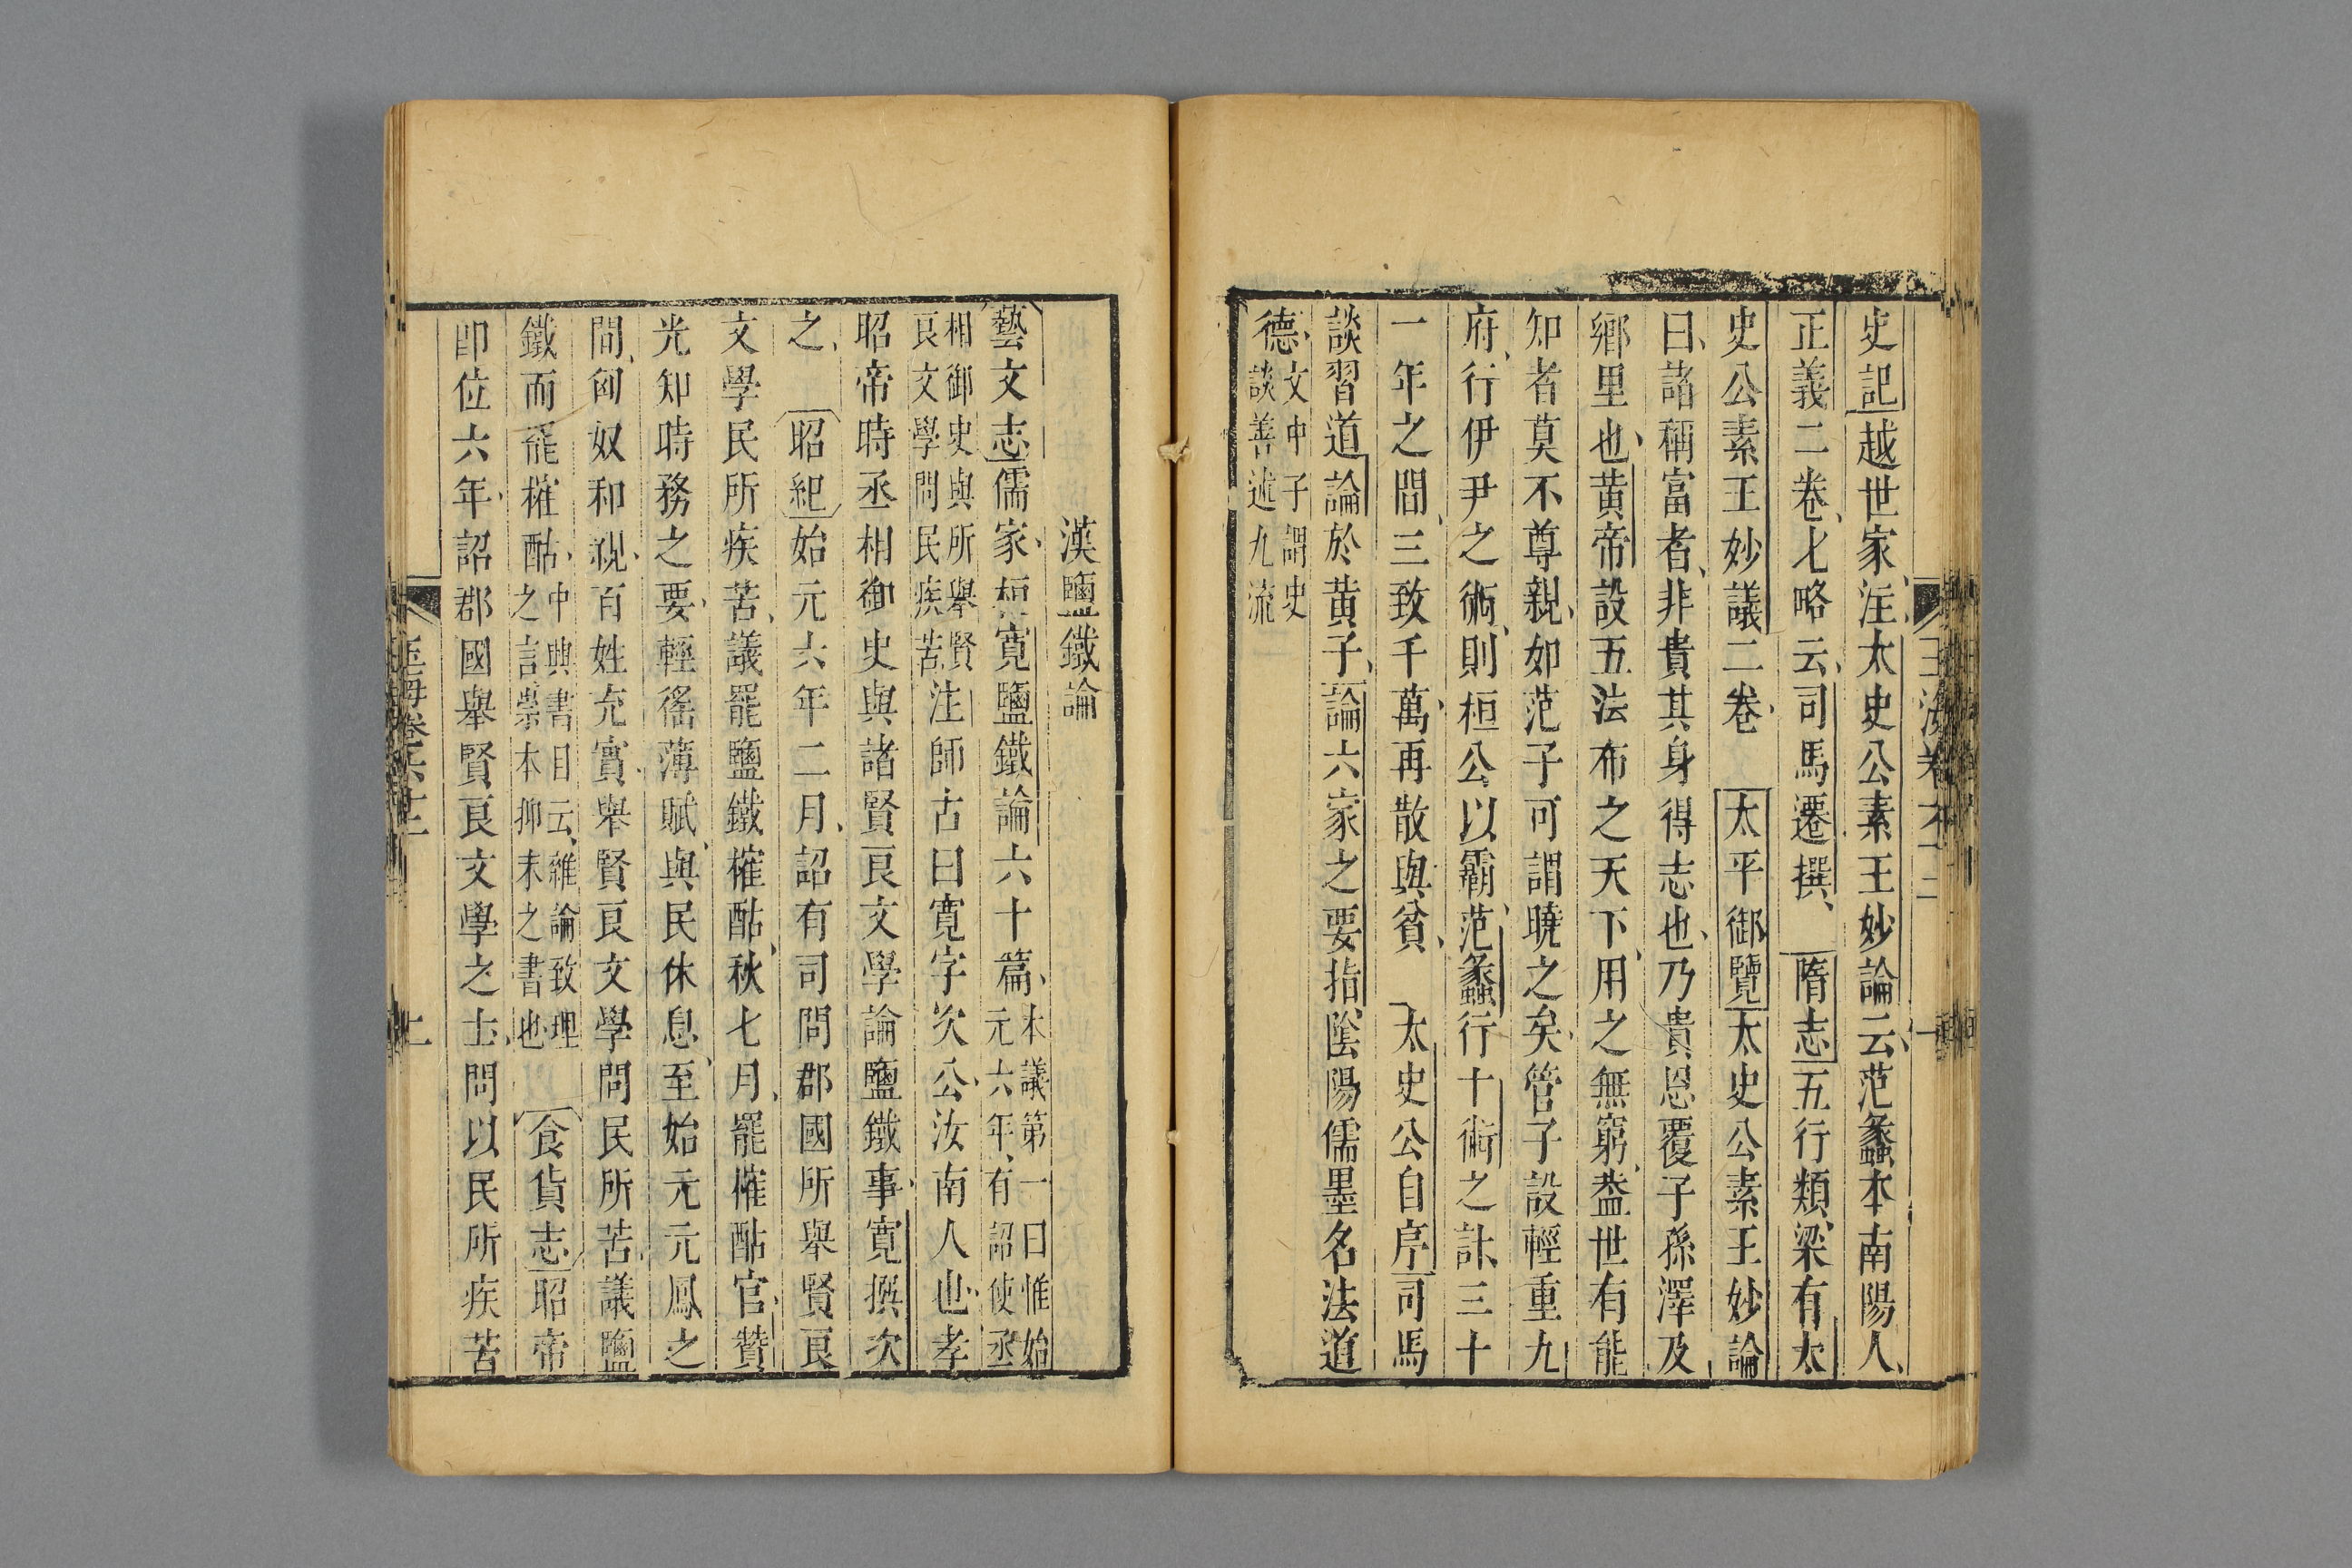 史記越世家注太史公素王妙論云范蠡本南陽人
正義二卷七略云司馬遷撰隋志五行類梁有太
史公素王妙議二卷 太平御覽太史公素王妙論
曰諸稱富者非貴其身得志也乃貴恩覆子孫澤及
鄉里也黄帝設五法布之天下用之無窮葢世有能
知者莫不尊親如范子可謂曉之矣管子設輕重九
府行伊尹之術則桓公以霸范蠡行十術之計三十
一年之間三致千萬再散與貧 太史公自序司馬
談習道論於黄子論六家之要指隂陽儒墨名法道
德文中子謂史
談善述九流
漢鹽鐵論
藝文志儒家桓寛鹽鐵論六十篇本議第一曰惟始
元六年有詔使丞
相御史與所舉賢
良文學問民疾苦注師古曰寛字次公汝南人也孝
昭帝時丞相御史與諸賢良文學論鹽鐵事寛撰次
之 昭紀始元六年二月詔有司問郡國所舉賢良
文學民所疾苦議罷鹽鐵榷酤秋七月罷榷酤官贊
光知時務之要輕徭薄賦與民休息至始元元鳳之
間匈奴和親百姓充實舉賢良文學問民所苦議鹽
鐵而罷榷酤中興書目云雜論致理
之言崇本抑末之書也 食貨志昭帝
即位六年詔郡國舉賢良文學之士問以民所疾苦